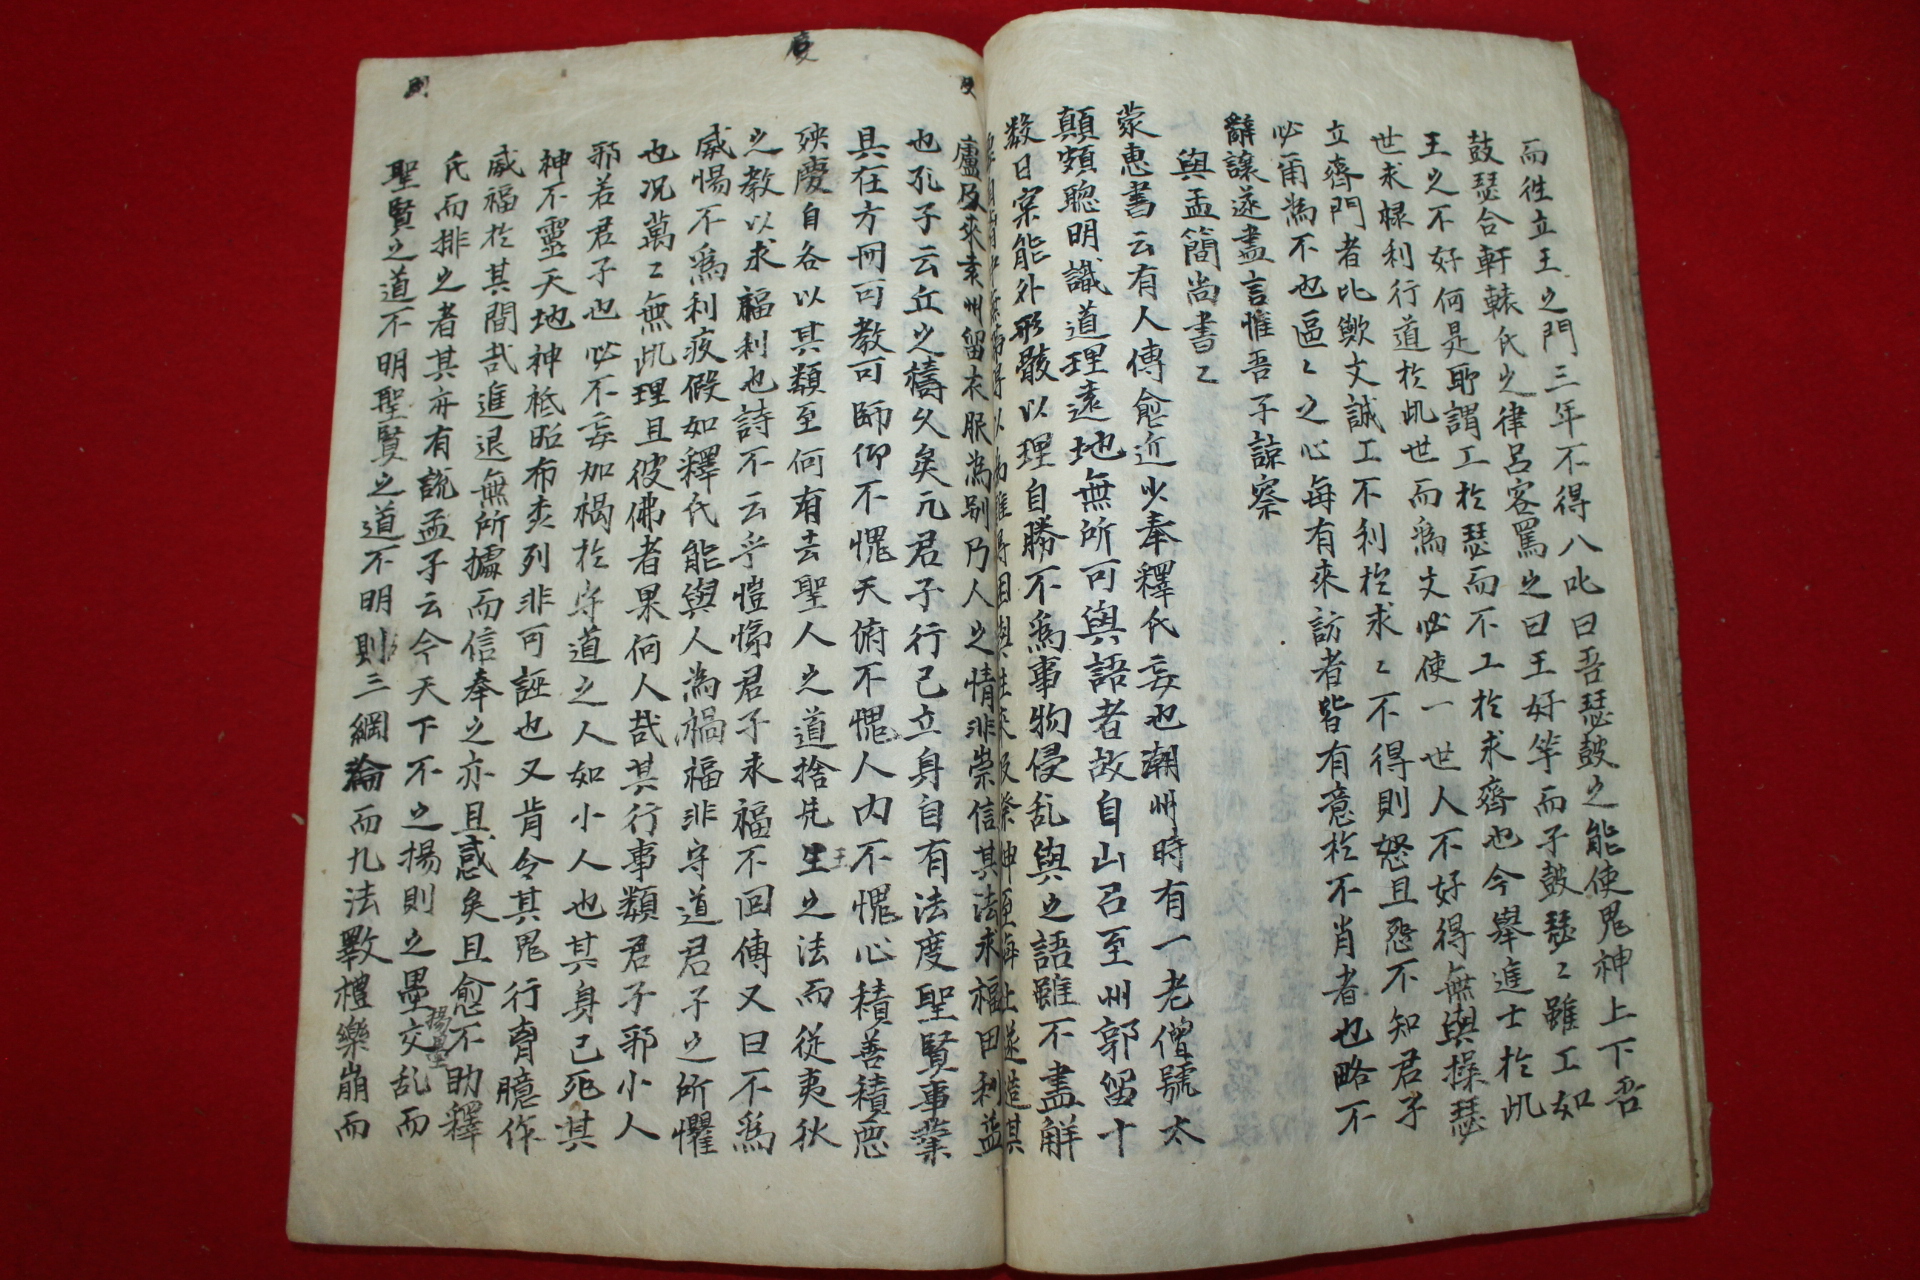 而徃立王之門三年不得入叱曰吾瑟鼓之能使鬼神上下吾
鼓瑟合軒轅氏之律呂客罵之曰王好竽而子鼓瑟〻雖工如
王之不好何是耶謂工於瑟而不工於求齊也今舉進士於此
世求祿利行道於此世而爲文必使一世人不好得無與操瑟
立齊門者比歟文誠工不利於求〻不得則怒且怨不知君子
必甭爲不也區〻之心每有來訪者皆有意於不肖者也略不
辭讓遂盡言惟吾子諒察
與孟簡尚書〻
蒙惠書云有人傳愈近少奉釋氏妄也潮州時有一老僧號太
顛頗聰明識道理遠地無所可與語者故自山召至州郭留十
数日宲能外形骸以理自勝不爲事物侵乱與之語雖不盡觧
廬及來袁州留衣服為別乃人之情非崇信其法求福田利益
也孔子云丘之禱久矣凡君子行己立身自有法度聖賢事業
具在方冊可教可師仰不愧天俯不愧人內不愧心積善積惡
殃慶自各以其類至何有去聖人之道捨先王之法而從夷狄
之教以求福利也詩不云乎愷悌君子求福不回傳又曰不爲
威惕不爲利疚假如釋氏能與人為禍福非守道君子之所懼
也况萬〻無此理且彼佛者果何人哉其行事類君子邪小人
邪若君子也必不妄加禍於守道之人如小人也其身已死其
神不靈天地神祗昭布森列非可誣也又肯令其鬼行胷臆作
威福於其間哉進退無所據而信奉之亦且惑矣且愈不助釋
氏而排之者其亦有説孟子云今天下不之揚則之墨交乱而
揚墨
聖賢之道不明聖賢之道不明則三綱淪而九法斁禮樂崩而